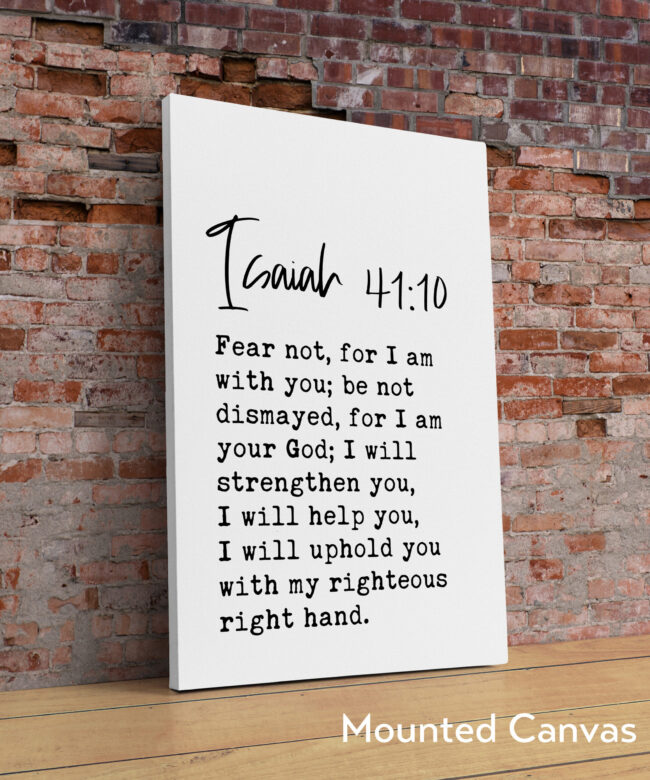 Isaiah 41:10
Fear not, for I am
with you; be not
dismayed, for I am
your God; I will
strengthen you,
I will help you,
I will uphold you
with my righteous
right hand.
Mounted Canvas